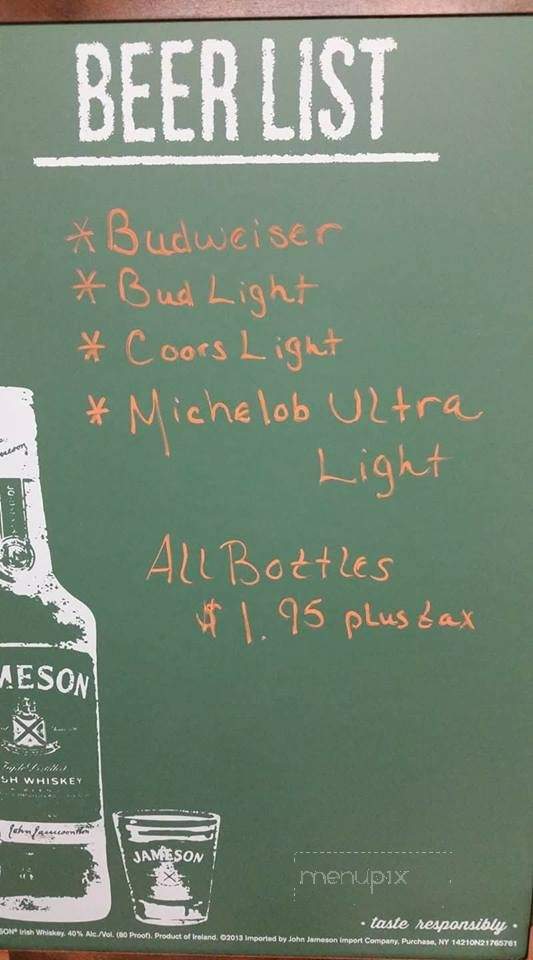 BEER LIST
* Budweiser
* Bud Light
* Coors Light
* Michelob Ultra
Light
All Bottles
$1.95 plus tax
MESON
SH WHISKEY
JAMESON
menupix
• taste responsibly •
SON® Irish Whiskey. 40% Alc./Vol. (80 Proof). Product of Ireland. ©2013 Imported by John Jameson Import Company, Purchase, NY 14210N21765761